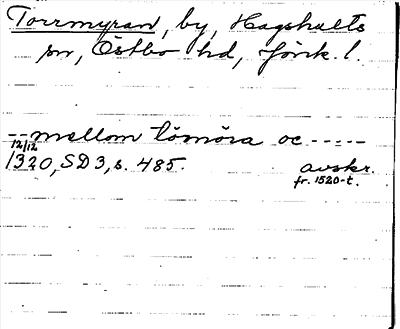 Torrmyran, by, Hagshults
sn, Östbo hd, Jönk. l.
-- mellom tömöra oc -----
12/12
1320, SD 3, s. 485. avskr.
fr. 1520-t.